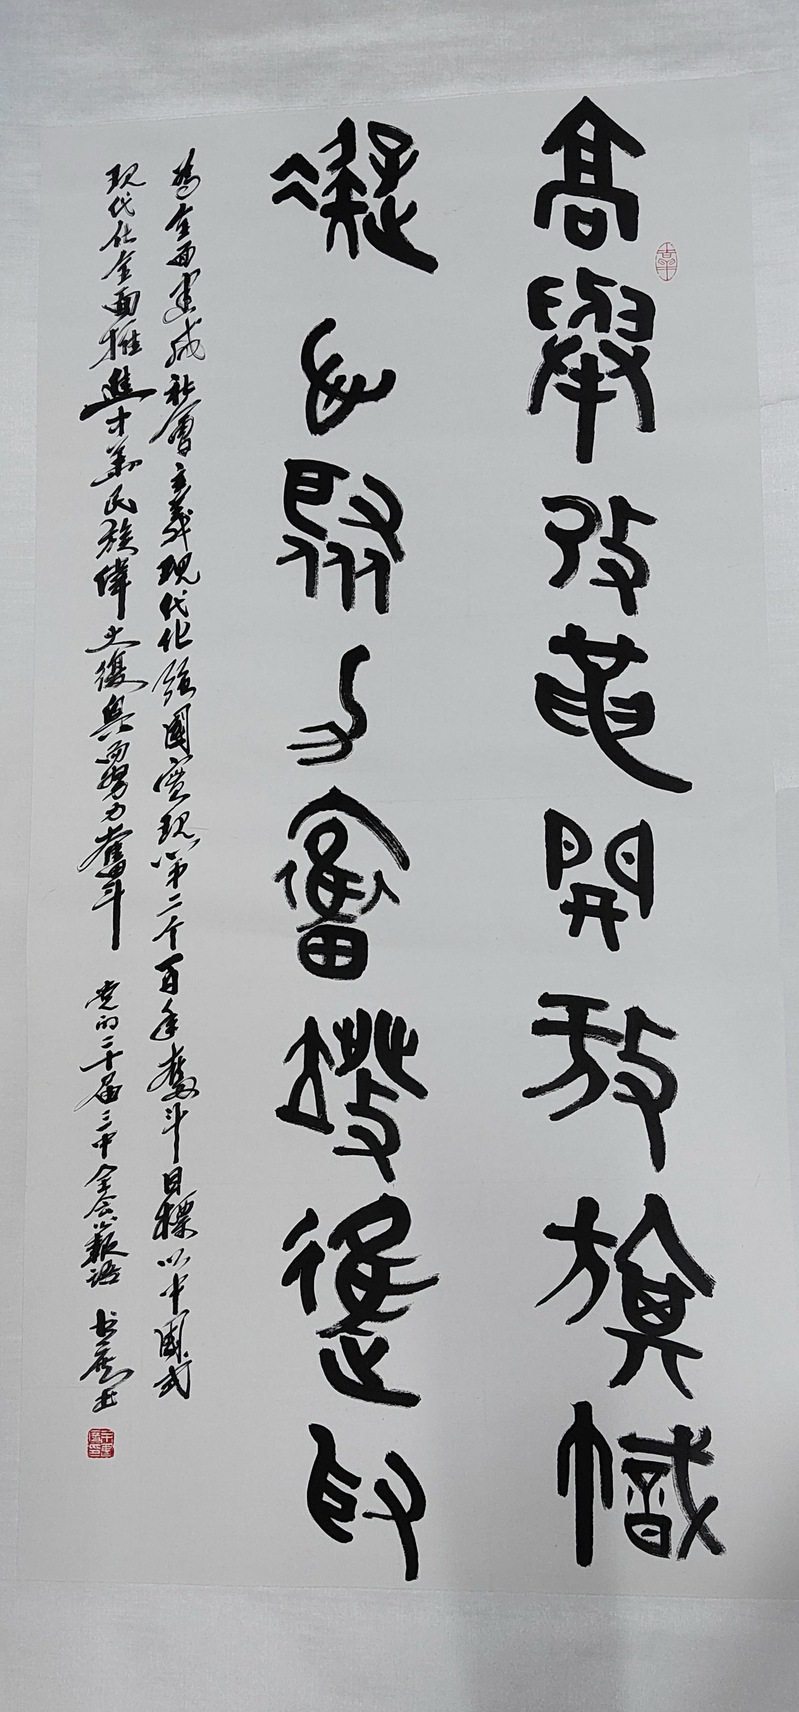 高舉改革開放旗幟
凝心聚力奮發進取
為全面建成社會主義現代化強國實現第二个百年奮斗目標以中國式
現代化全面推進中華民族偉大復興而努力奮斗 党的二十届三中全会公報語